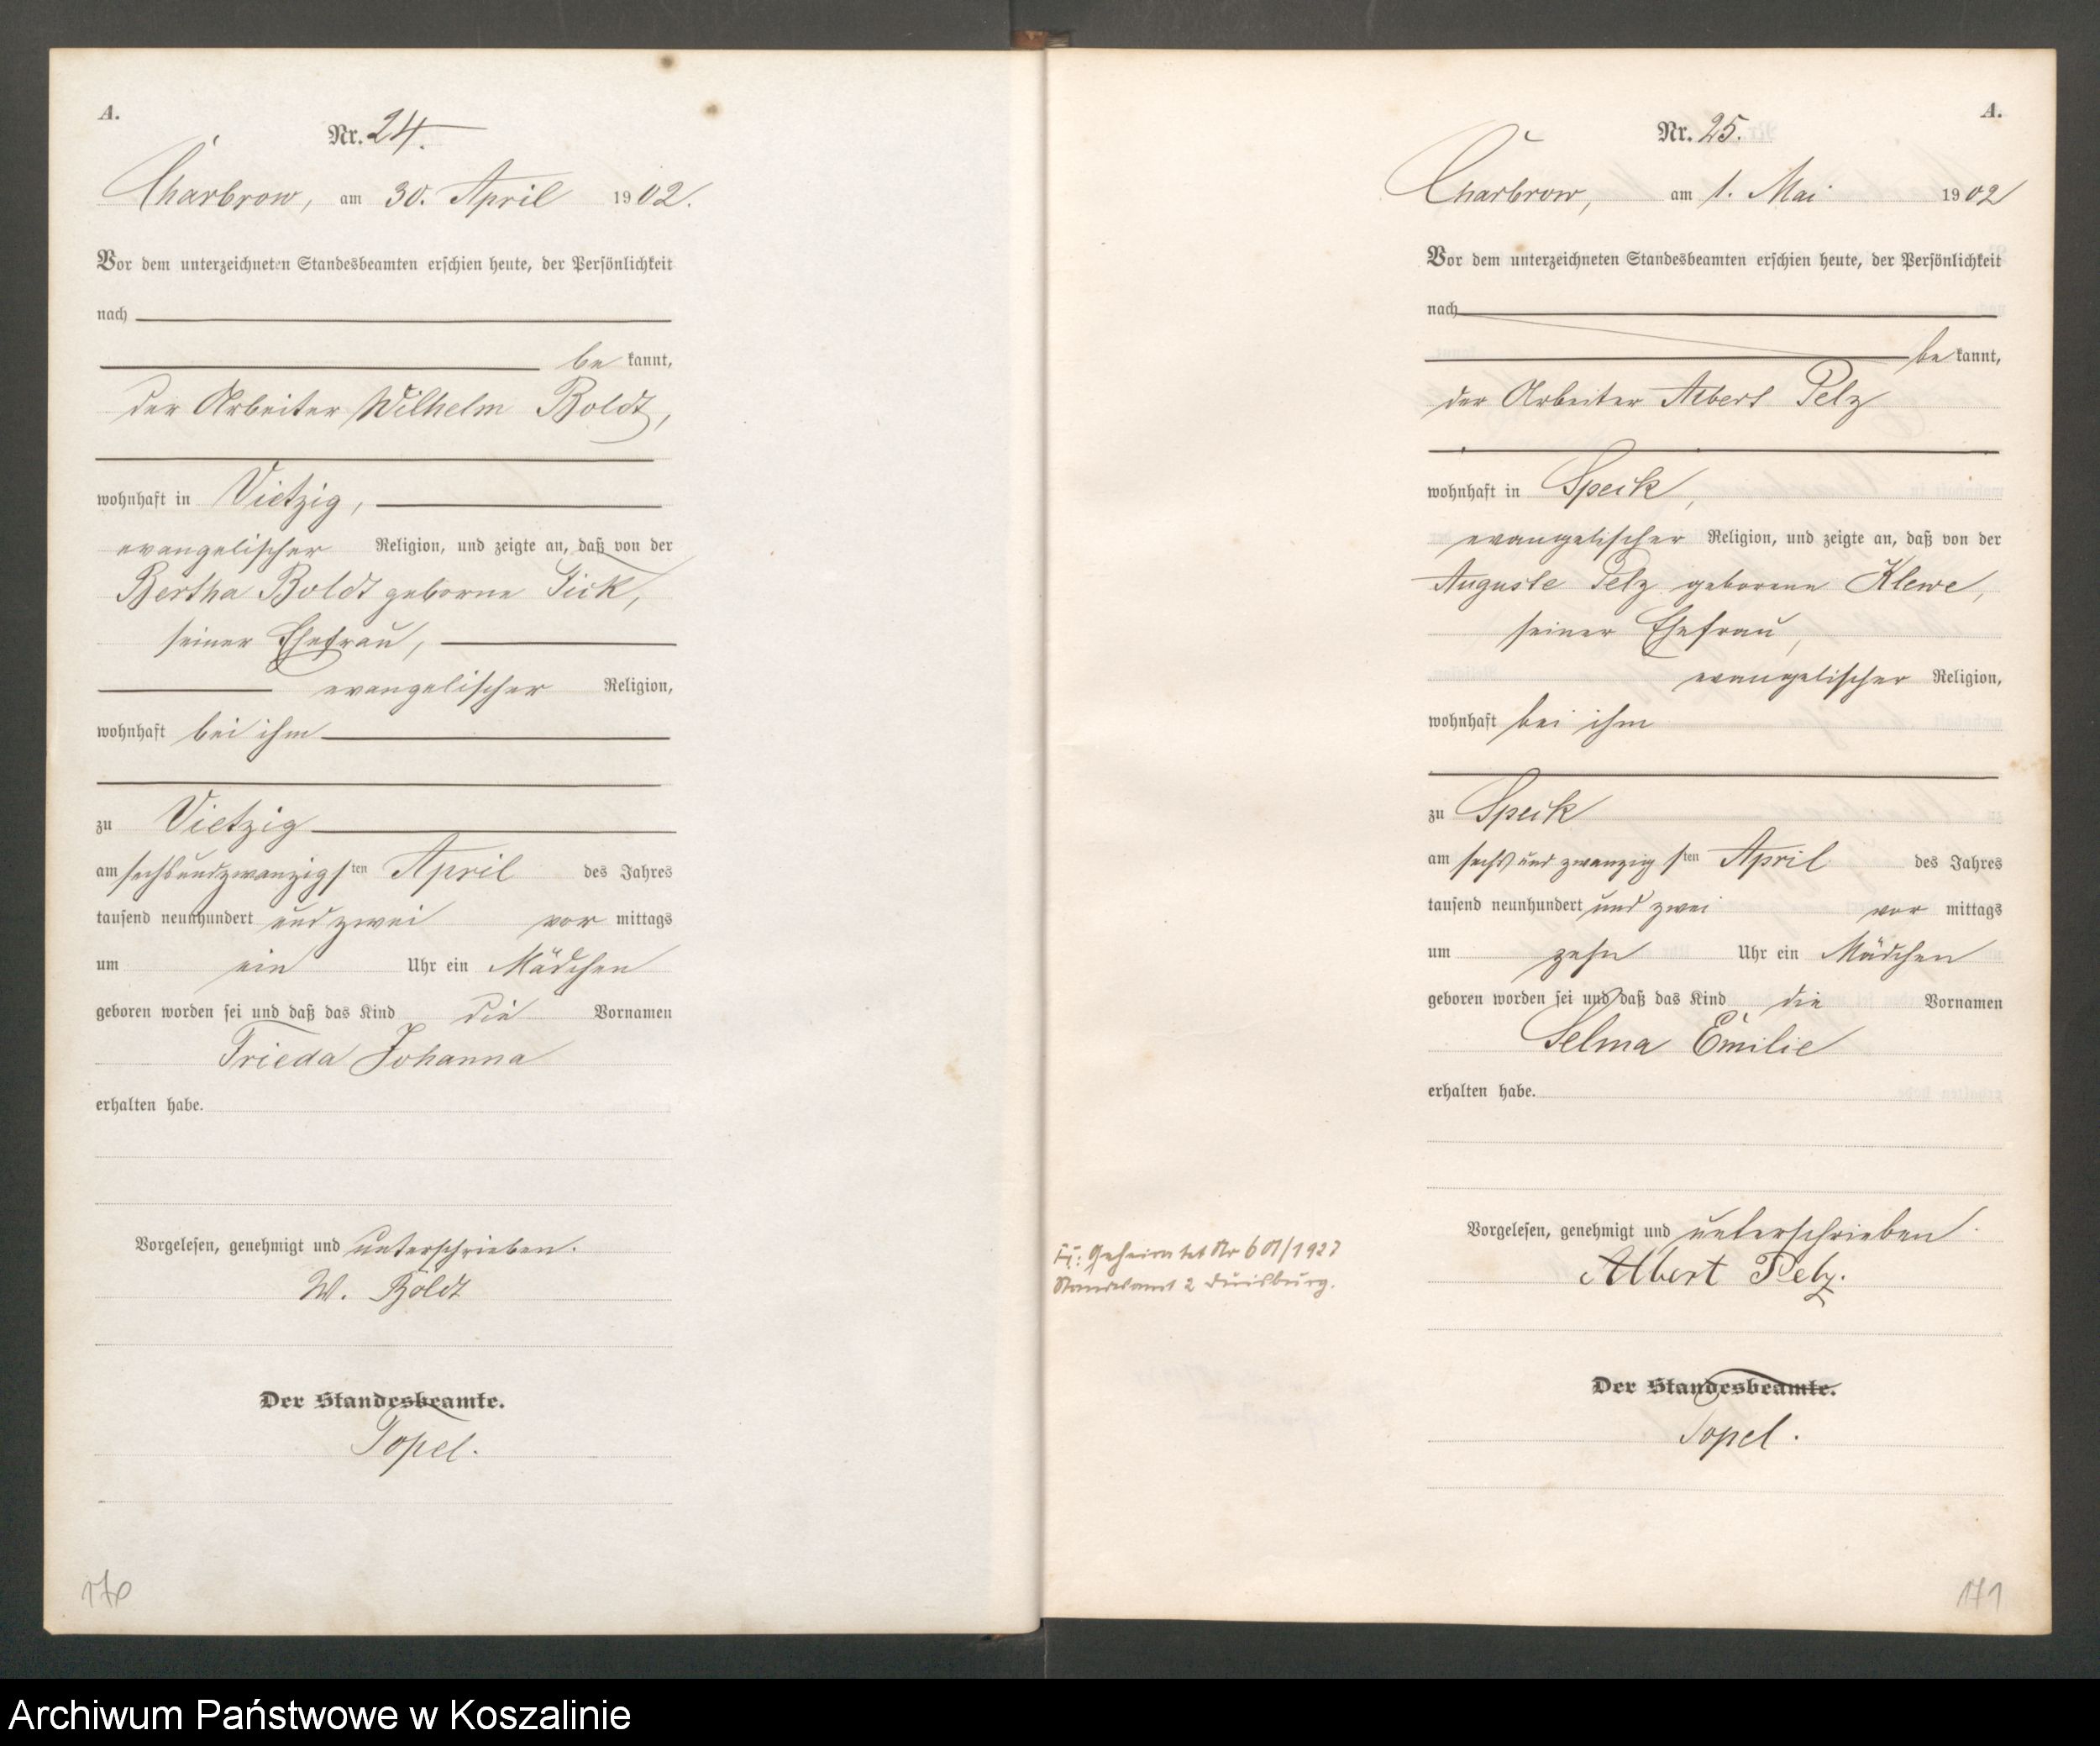 A.
Nr. 24.
Charbrow, am 30. April 1902.
Vor dem unterzeichneten Standesbeamten erschien heute, der Persönlichkeit
nach
be kannt,
der Arbeiter Wilhelm Boldt,
wohnhaft in Vietzig,
evangelischer Religion, und zeigte an, daß von der
Bertha Boldt geborne Fick,
seiner Ehefrau,
evangelischer Religion,
wohnhaft bei ihm
zu Vietzig
am sechsundzwanzigsten April des Jahres
tausend neunhundert und zwei vor mittags
um ein Uhr ein Mädchen
geboren worden sei und daß das Kind die Vornamen
Frieda Johanna
erhalten habe.
Vorgelesen, genehmigt und unterschrieben.
W. Boldt
Der Standesbeamte.
Topel.
170
A.
Nr. 25.
Charbrow, am 1. Mai 1902
Vor dem unterzeichneten Standesbeamten erschien heute, der Persönlichkeit
nach
be kannt,
der Arbeiter Albert Pelz
wohnhaft in Speck,
evangelischer Religion, und zeigte an, daß von der
Auguste Pelz geborene Klewe,
seiner Ehefrau,
evangelischer Religion,
wohnhaft bei ihm
zu Speck
am sechsundzwanzigsten April des Jahres
tausend neunhundert und zwei vor mittags
um zehn Uhr ein Mädchen
geboren worden sei und daß das Kind die Vornamen
Selma Emilie
erhalten habe.
Vorgelesen, genehmigt und unterschrieben.
Albert Pelz.
Geheiratet Nr /1927
Standesamt 2 Duisburg.
Der Standesbeamte.
Topel.
171
Archiwum Państwowe w Koszalinie